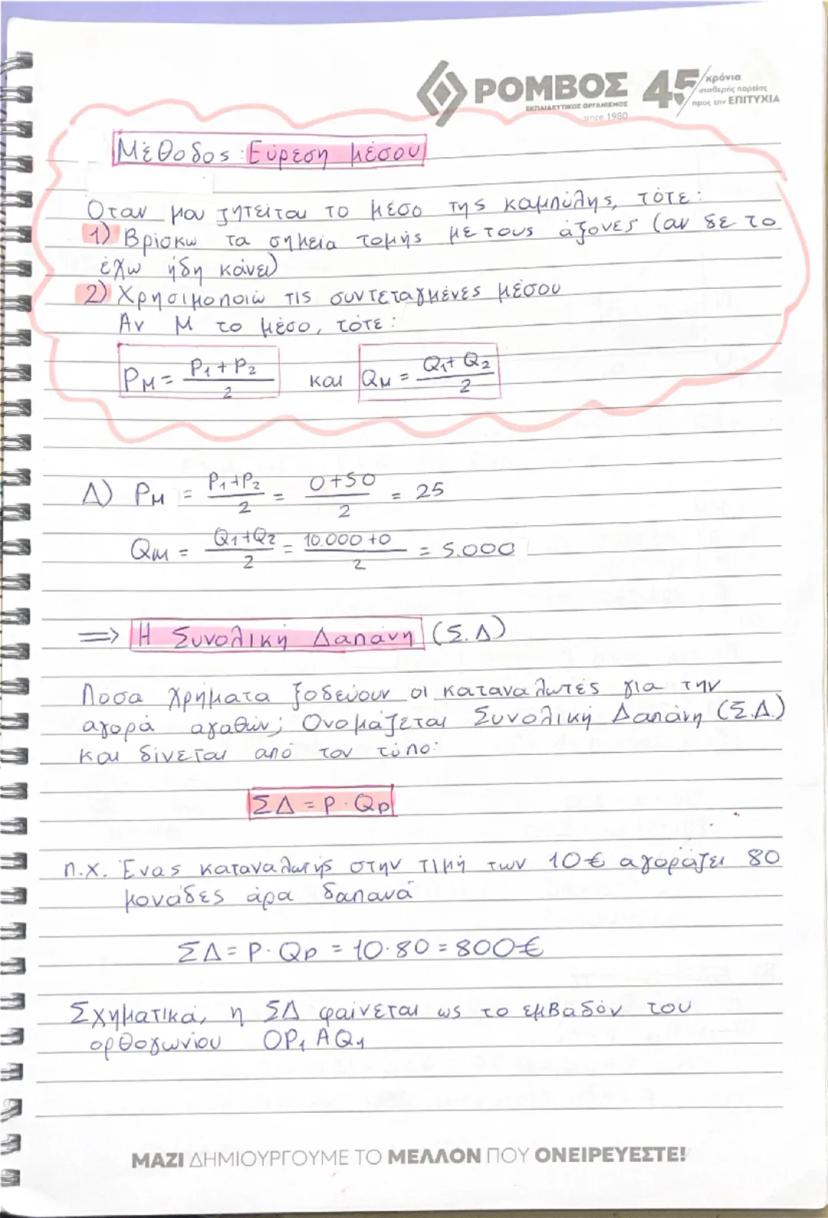 ΡΟΜΒΟΣ
ΕΚΠΑΙΔΕΥΤΙΚΟΣ ΟΡΓΑΝΙΣΜΟΣ
since 1980
45 χρόνια
σταθερής πορείας
προς την ΕΠΙΤΥΧΙΑ
Μέθοδος: Εύρεση μέσου
Όταν μου ζητείται το μέσο της καμπύλης, τότε:
1) Βρίσκω τα σημεία τομής με τους άξονες (αν δε το
έχω ήδη κάνει)
2) Χρησιμοποιώ τις συντεταγμένες μέσου
Αν Μ το μέσο, τότε:
P_M = (P_1 + P_2)/2 και Q_M = (Q_1 + Q_2)/2
Δ) P_M = (P_1+P_2)/2 = (0+50)/2 = 25
Q_M = (Q_1+Q_2)/2 = (10.000+0)/2 = 5.000
=> Η Συνολική Δαπάνη (Σ.Δ)
Ποσα χρήματα ξοδεύουν οι καταναλωτές για την
αγορά αγαθών; Ονομάζεται Συνολική Δαπάνη (Σ.Δ.)
και δίνεται από τον τύπο:
ΣΔ = P · Q_D
π.χ. Ένας καταναλωτής στην τιμή των 10€ αγοράζει 80
μονάδες άρα δαπανά
ΣΔ = P · Q_D = 10·80 = 800€
Σχηματικά, η ΣΔ φαίνεται ως το εμβαδόν του
ορθογωνίου OP_1AQ_1
ΜΑΖΙ ΔΗΜΙΟΥΡΓΟΥΜΕ ΤΟ ΜΕΛΛΟΝ ΠΟΥ ΟΝΕΙΡΕΥΕΣΤΕ!